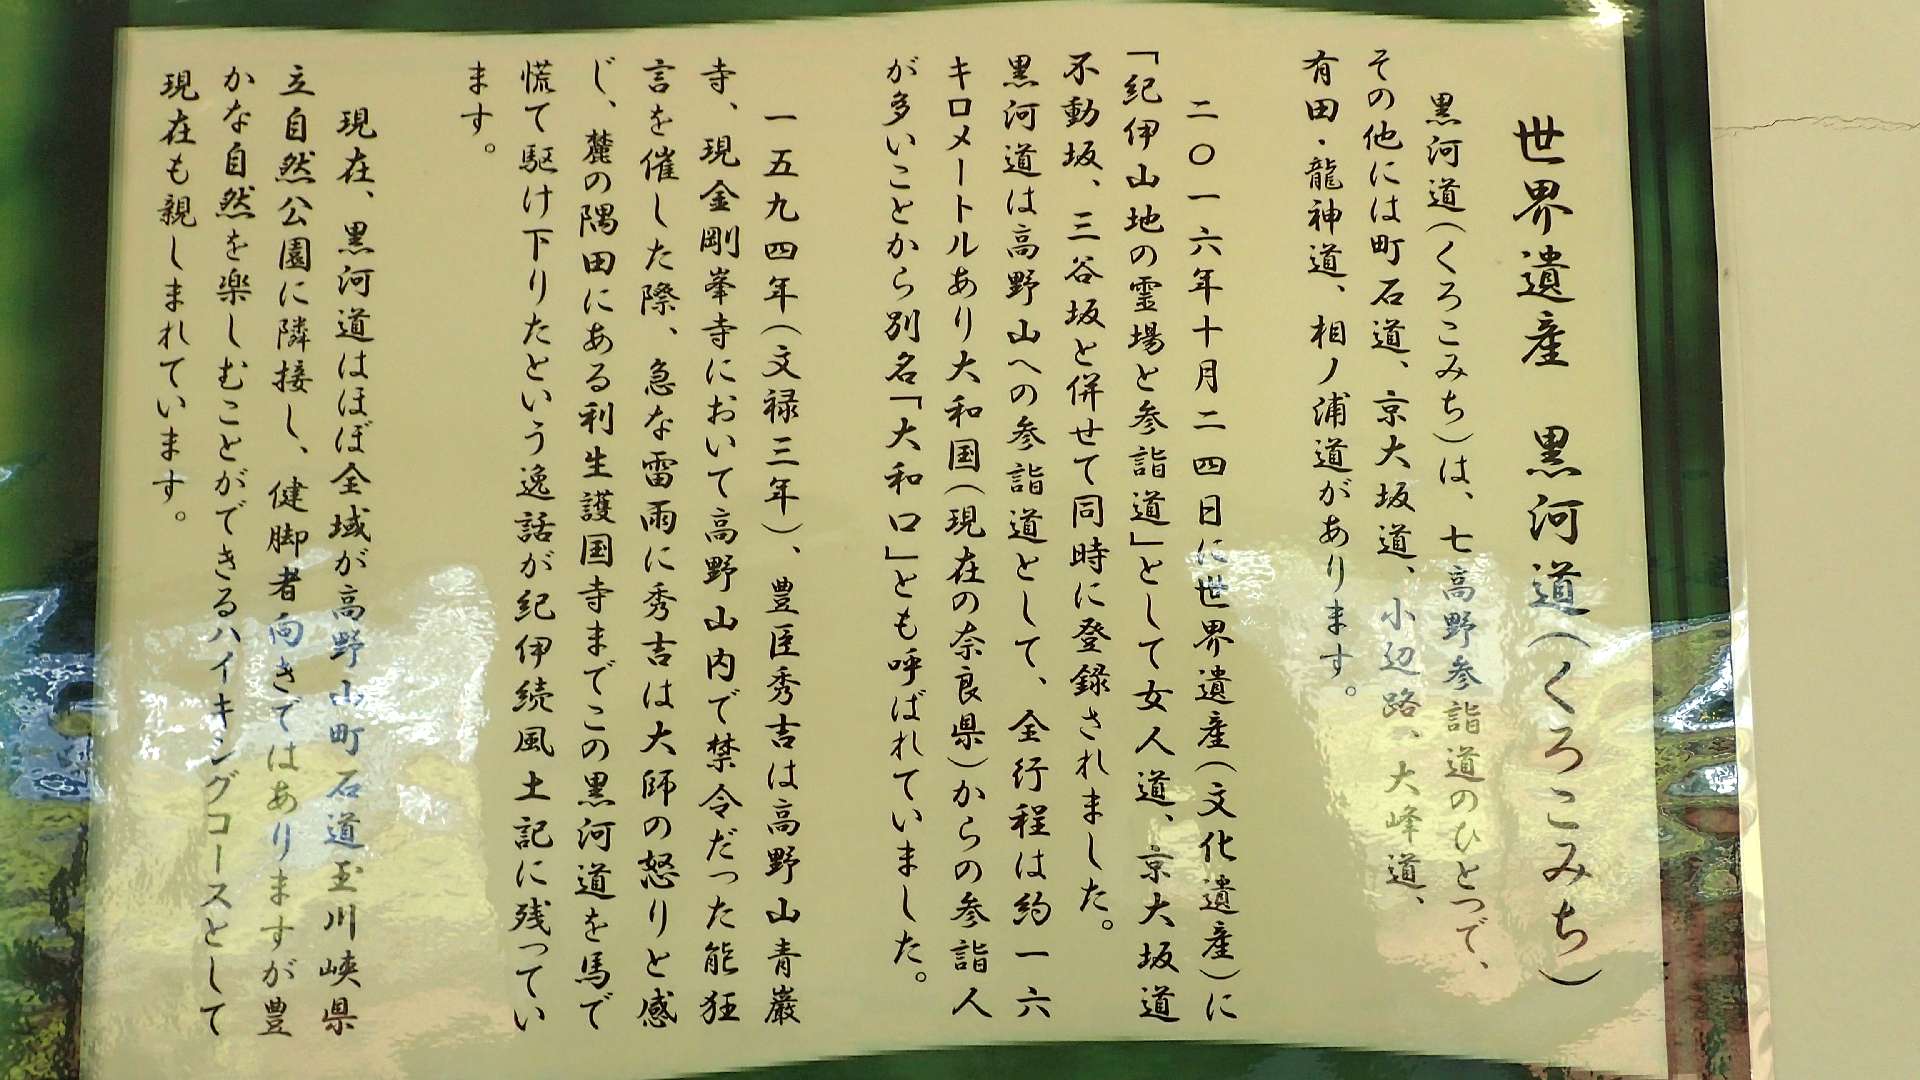 世界遺産　黒河道(くろこみち)
黒河道(くろこみち)は、七高野参詣道のひとつで、
その他には町石道、京大坂道、小辺路、大峰道、
有田・龍神道、相ノ浦道があります。
二〇一六年十月二四日に世界遺産(文化遺産)に
「紀伊山地の霊場と参詣道」として女人道、京大坂道
不動坂、三谷坂と併せて同時に登録されました。
黒河道は高野山への参詣道として、全行程は約一六
キロメートルあり大和国(現在の奈良県)からの参詣人
が多いことから別名「大和口」とも呼ばれていました。
一五九四年(文禄三年)、豊臣秀吉は高野山青巖
寺、現金剛峯寺において高野山内で禁令だった能狂
言を催した際、急な雷雨に秀吉は大師の怒りと感
じ、麓の隅田にある利生護国寺までこの黒河道を馬で
慌て駆け下りたという逸話が紀伊続風土記に残ってい
ます。
現在、黒河道はほぼ全域が高野山町石道玉川峡県
立自然公園に隣接し、健脚者向きではありますが豊
かな自然を楽しむことができるハイキングコースとして
現在も親しまれています。